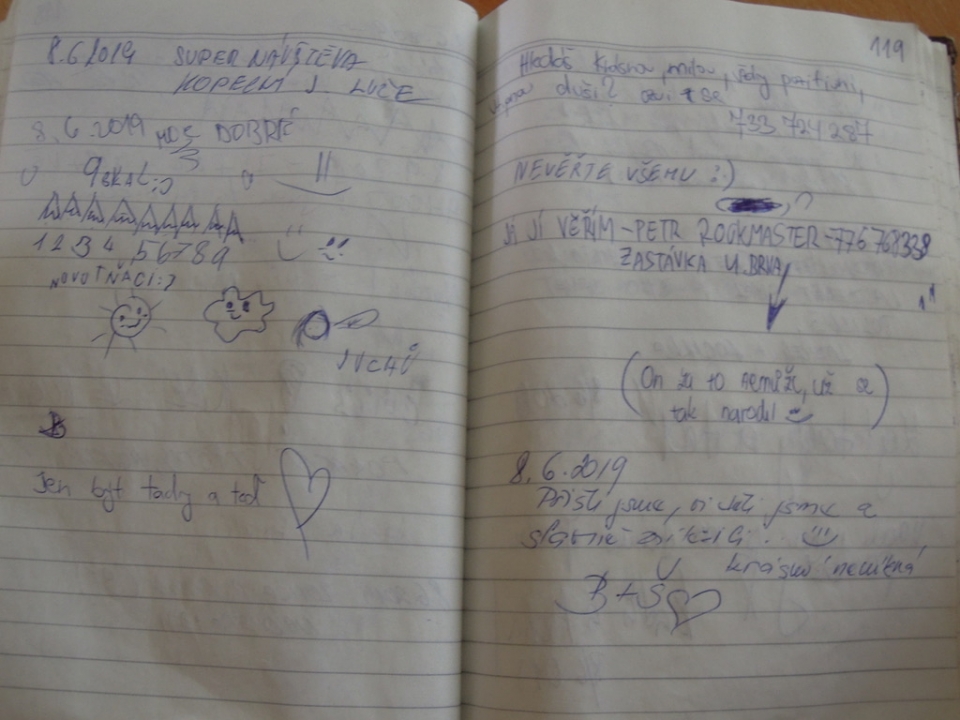 8.6.2019 SUPER NÁVŠTĚVA
KOPEČNÍ J. LUČE
8.6.2019 MOC DOBRÉ
9 SKAL :)
1 2 3 4 5 6 7 8 9
NOVOTŇÁCI :)
Jen být tady a teď
119
Hledáš krásnou, milou, vždy pozitivní,
duši? ozvi se
733 724 287
NEVĚŘTE VŠEMU :)
JÁ JÍ VĚŘÍM - PETR ROCKMASTER - 776768338
ZASTÁVKA U BRNA
(On za to nemůže, už se
tak narodil)
8.6.2019
Přišli jsme, viděli jsme a
slavně zvítězili.
B + S